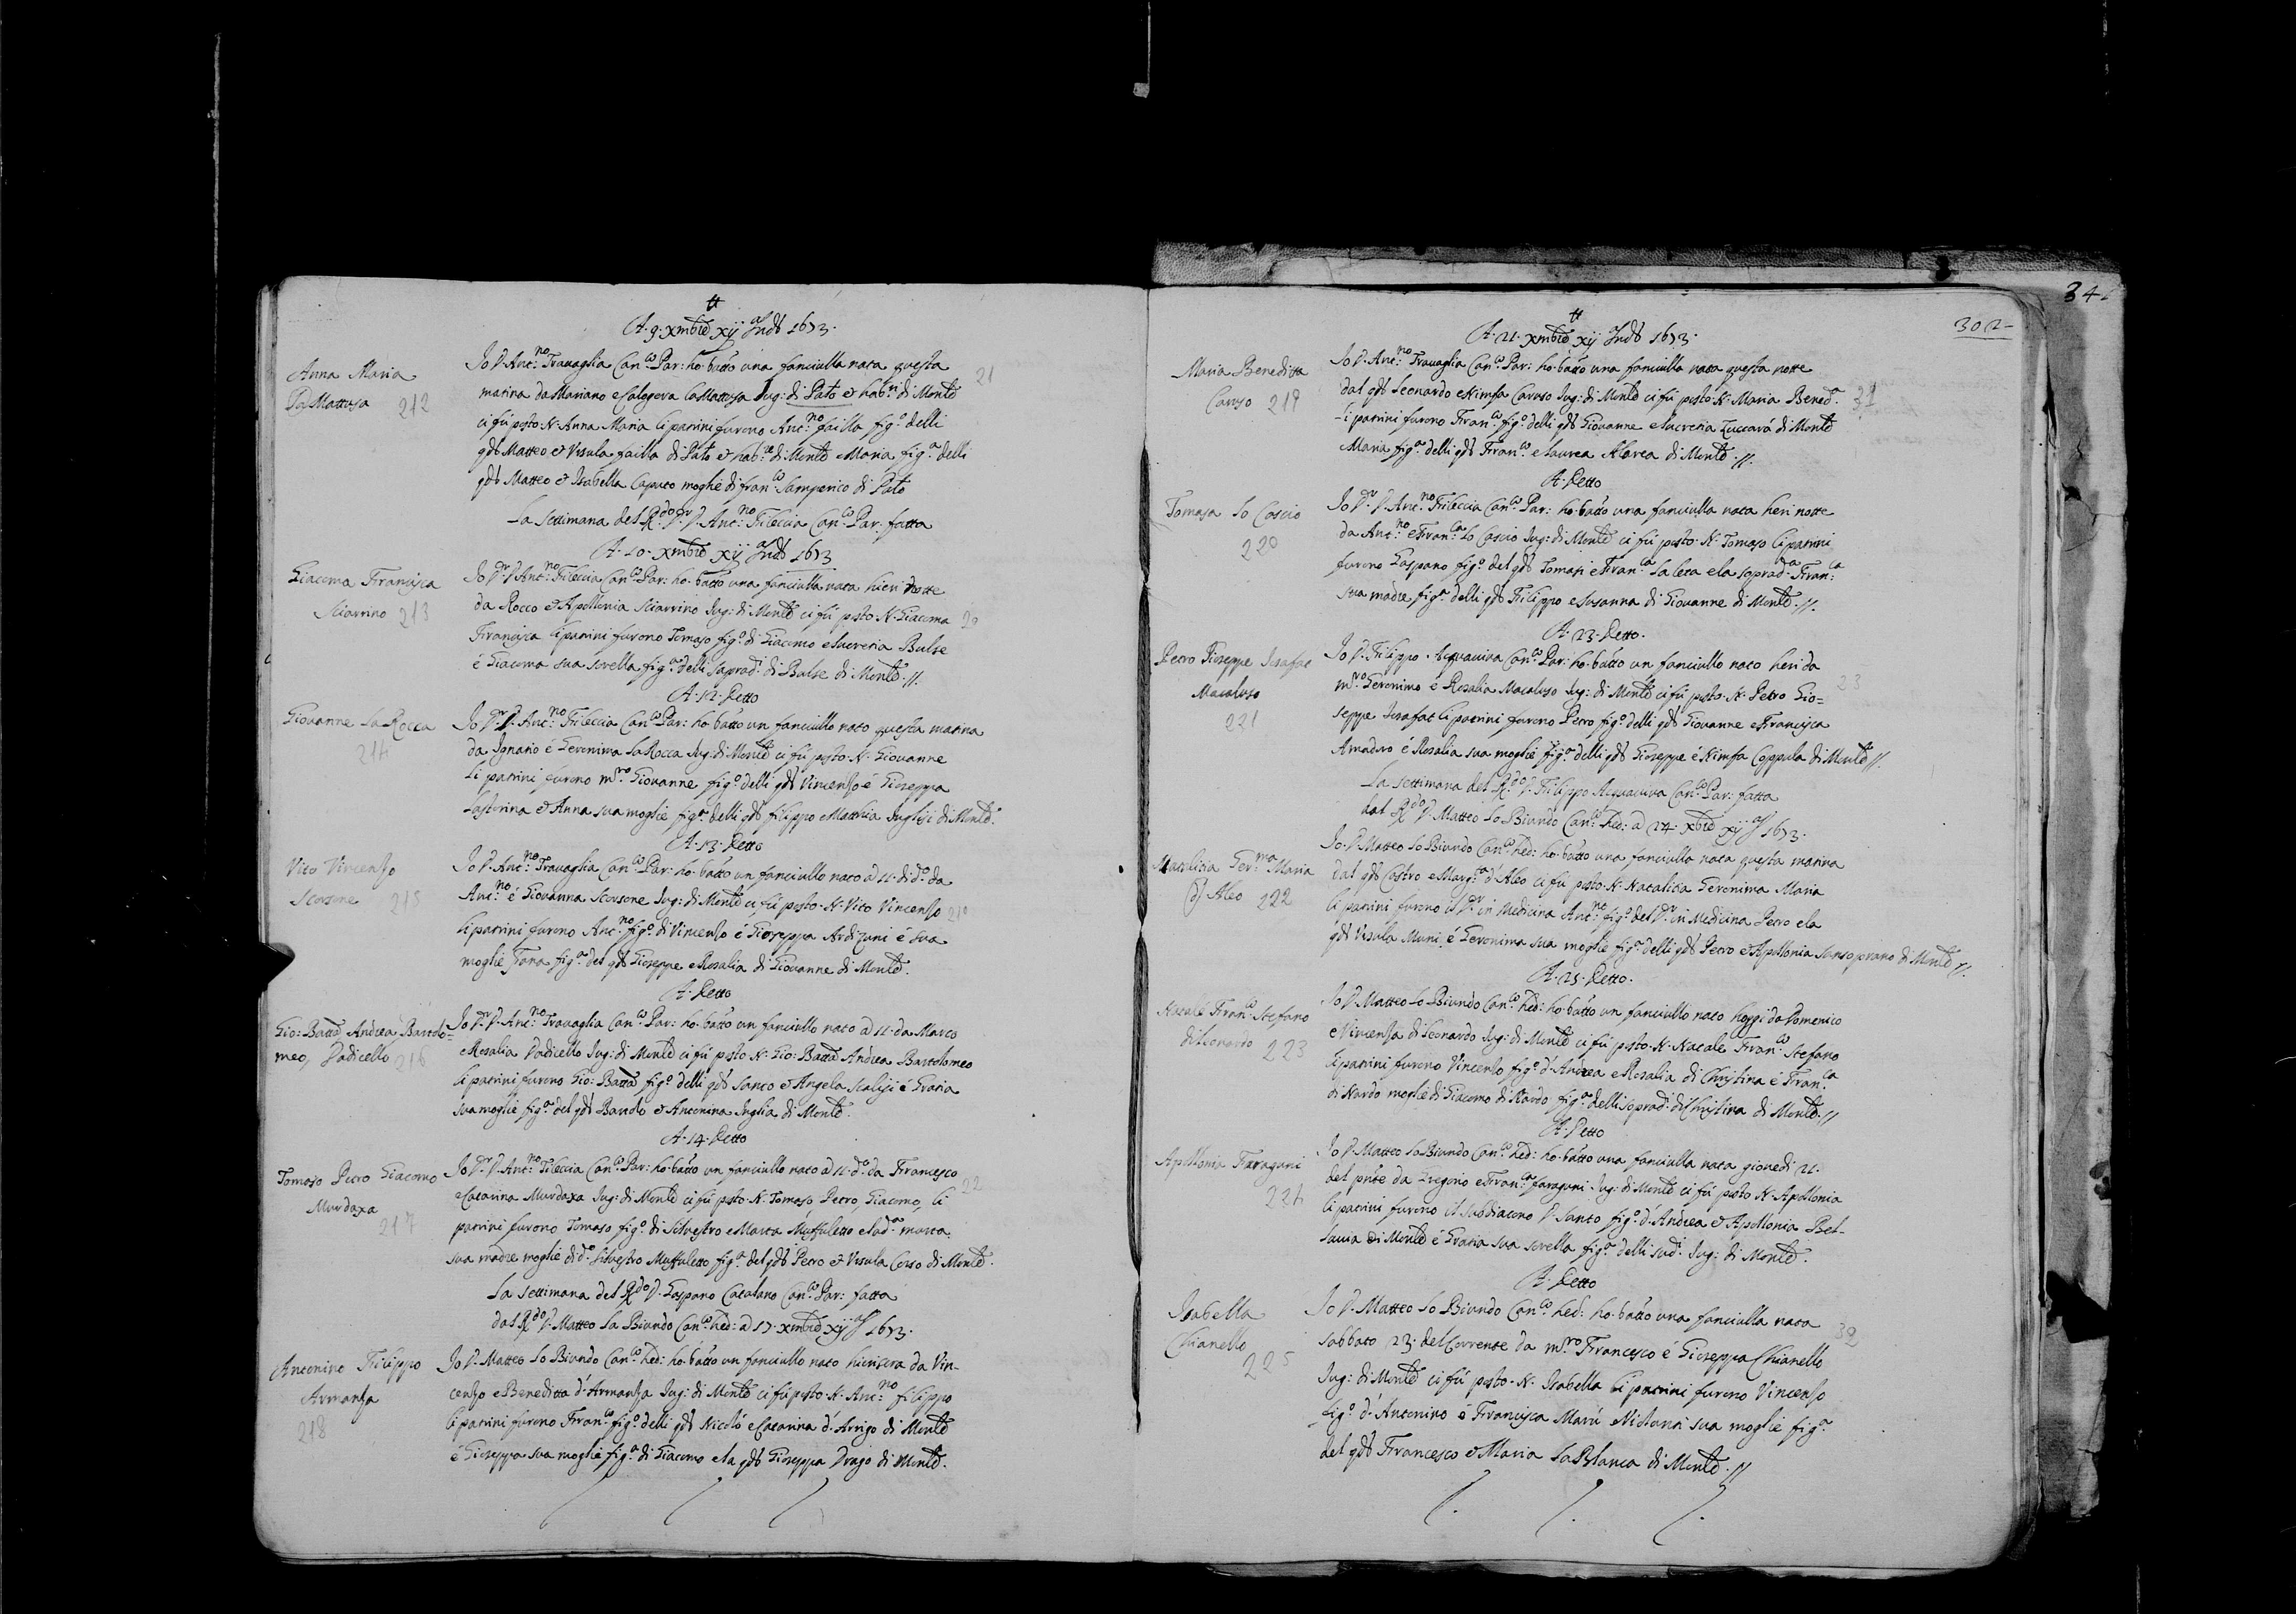 A. 9. xmbre xij Indt 1673.
Anna Maria
La Mattosa 212
Io D. Ant.no Travaglia Can.co Par: ho batto una fanciulla nata questa 21
matina da Mariano e Calogera La Mattosa Iug: di Pato et hab.ti di Monte
ci fù posto N. Anna Maria li patrini furono Ant.no failla fig.o delli
qdt Matteo et Vrsula failla di Pato et hab.te di Monte e Maria fig.a delli
qdt Matteo et Isabella Caputo moglie di fran.co Samperico di Pato
La settimana del R.do Dr. D. Ant.no Fileccia Can.co Par: fatta
A. 10. xmbre xij Indt 1673
Giacoma Francisca
Sciarrino 213
Io Dr. D. Ant.no Fileccia Can.co Par: ho batto una fanciulla nata hieri notte
da Rocco et Apollonia Sciarrino Iug: di Monte ci fù posto N. Giacoma 20
Francisca li patrini furono Tomaso fig.o di Giacomo e Lucretia Bulse
è Giacoma sua sorella fig.a delli soprad.i di Bulse di Monte. //.
A. 12. Detto
Giovanne La Rocca
214
Io Dr. D. Ant.no Fileccia Can.co Par: ho batto un fanciullo nato questa matina
da Ignatio è Geronima La Rocca Iug: di Monte ci fù posto N. Giovanne
li patrini furono m.ro Giovanne fig.o delli qdt Vincenso è Gioseppa
Lastorina et Anna sua moglie fig.a delli qdt filippo e Matthia Inglisi di Monte.
A. 13. Detto
Vito Vincenso
Scorsone 215
Io D. Ant.no Travaglia Can.co Par: ho batto un fanciullo nato à 11. di d.o da
Ant.no è Giovanna Scorsone Iug: di Monte ci fù posto N. Vito Vincenso
li patrini furono Ant.no fig.o di Vincenso è Gioseppa Ardizuni è sua
moglie Gana fig.a del qdt Gioseppe e Rosalia di Giovanne di Monte.
A. Detto
Gio: Batta Andrea Bartolo=
meo, Dadicello 216
Io Dr. D. Ant.no Travaglia Can.co Par: ho batto un fanciullo nato à 11. da Marco
e Rosalia Dadicello Iug: di Monte ci fù posto N. Gio: Batta Andrea Bartolomeo
li patrini furono Gio: Batta fig.o delli qdt Santo et Angela Scalisi è Gratia
sua moglie fig.a del qdt Bartolo et Antonina Inglia di Monte.
A. 14. Detto
Tomaso Pietro Giacomo
Murdaxa
217
Io Dr. D. Ant.no Fileccia Can.co Par: ho batto un fanciullo nato à 11. d.o da Francesco
e Catarina Murdaxa Iug: di Monte ci fù posto N. Tomaso, Petro, Giacomo, li 22
patrini furono Tomaso fig.o di Silvestro e Marta Muffuletto e la d.a marta
sua madre moglie di d.o Silvestro Muffuletto fig.a del qdt Petro et Vrsula Corso di Monte.
La settimana del R.do D. Gaspano Catalano Can.co Par: fatta
dal R.do D. Matteo Lo Biundo Can.co hed: à 17. xmbre xij 1673.
Antonino Filippo
Armansa
218
Io D. Matteo Lo Biundo Can.co hed: ho batto un fanciullo nato hierisera da Vin-
censo e Beneditta d'Armansa Iug: di Monte ci fù posto N. Ant.no filippo
li patrini furono Fran.co fig.o delli qdt Nicolò e Catarina d'Arrigo di Monte
è Gioseppa sua moglie fig.a di Giacomo e la qdt Gioseppa Drago di Monte.
34
302
A. 21. xmbre xij Indt 1673.
Maria Beneditta
Caruso 219
Io D. Ant.no Travaglia Can.co Par: ho batto una fanciulla nata questa notte
dal qdt Leonardo e Nimfa Caruso Iug: di Monte ci fù posto N. Maria Bened.a 31
li patrini furono Fran.co fig.o delli qdt Giovanne e Lucretia Zuccarà di Monte
Maria fig.a delli qdt Fran.co e Laurea Alarea di Monte. //.
A. Detto
Tomasa Lo Coscio
220
Io Dr. D. Ant.no Fileccia Can.co Par: ho batto una fanciulla nata heri notte
da Ant.no e Fran.ca Lo Coscio Iug: di Monte ci fù posto N. Tomaso li patrini
furono Gaspano fig.o del qdt Tomasi e Fran.ca La leta e la soprad.a Fran.ca
sua madre fig.a delli qdt Filippo e Susanna di Giovanne di Monte. //.
A. 23. Detto.
Petro Gioseppe Iosafat
Macaluso
221
Io D. Filippo Acquaviva Can.co Par: ho batto un fanciullo nato heri da
m.ro Geronimo è Rosalia Macaluso Iug: di Monte ci fù posto N. Petro Gio= 23
seppe Iosafat li patrini furono Petro fig.o delli qdt Giovanne e Francisca
Amadoro è Rosalia sua moglie fig.a delli qdt Gioseppe è Nimfa Coppula di Monte //.
La settimana del R.do D. Filippo Acquaviva Can.co Par: fatta
dal R.do D. Matteo Lo Biundo Can.co hed: à 24. xbre xij 1673.
Natalitia Ger.ma Maria
d'Aleo 222
Io D. Matteo Lo Biundo Can.co hed: ho batto una fanciulla nata questa matina
dal qdt Castro e Marg.ta d'Aleo ci fù posto N. Natalitia Geronima Maria
li patrini furono il Dr. in Medicina Ant.no fig.o del Dr. in Medicina Petro e la
qdt Vrsula Muni è Geronima sua moglie fig.a delli qdt Petro et Apollonia Sansoprano di Monte //.
A. 25. Detto.
Natale Fran.co Stefano
di Leonardo 223
Io D. Matteo Lo Biundo Can.co hed: ho batto un fanciullo nato hoggi da Domenico
e Vincensa di Leonardo Iug: di Monte ci fù posto N. Natale Fran.co Stefano
li patrini furono Vincenso fig.o d'Andrea e Rosalia di Christina è Fran.ca
di Nardo moglie di Giacomo di Nardo fig.a delli soprad.i di Christina di Monte. //
A. Detto
Apollonia Faraguni
224
Io D. Matteo Lo Biundo Can.co hed: ho batto una fanciulla nata giovedi 21.
del pnte da Gregorio e Fran.ca faraguni Iug: di Monte ci fù posto N. Apollonia
li patrini furono il Subdiacono D. Santo fig.o d'Andrea et Apollonia Bel-
lavia di Monte è Gratia sua sorella fig.a delli sud.i Iug: di Monte.
A. Detto
Isabella
Chianello
225
Io D. Matteo Lo Biundo Can.co hed: ho batto una fanciulla nata
sabbato 23. del Corrente da m.ro Francesco è Gioseppa Chianello 32
Iug: di Monte ci fù posto N. Isabella li patrini furono Vincenso
fig.o d'Antonino è Francisca Marù e Vidana sua moglie fig.a
del qdt Francesco et Maria La Blanca di Monte. //